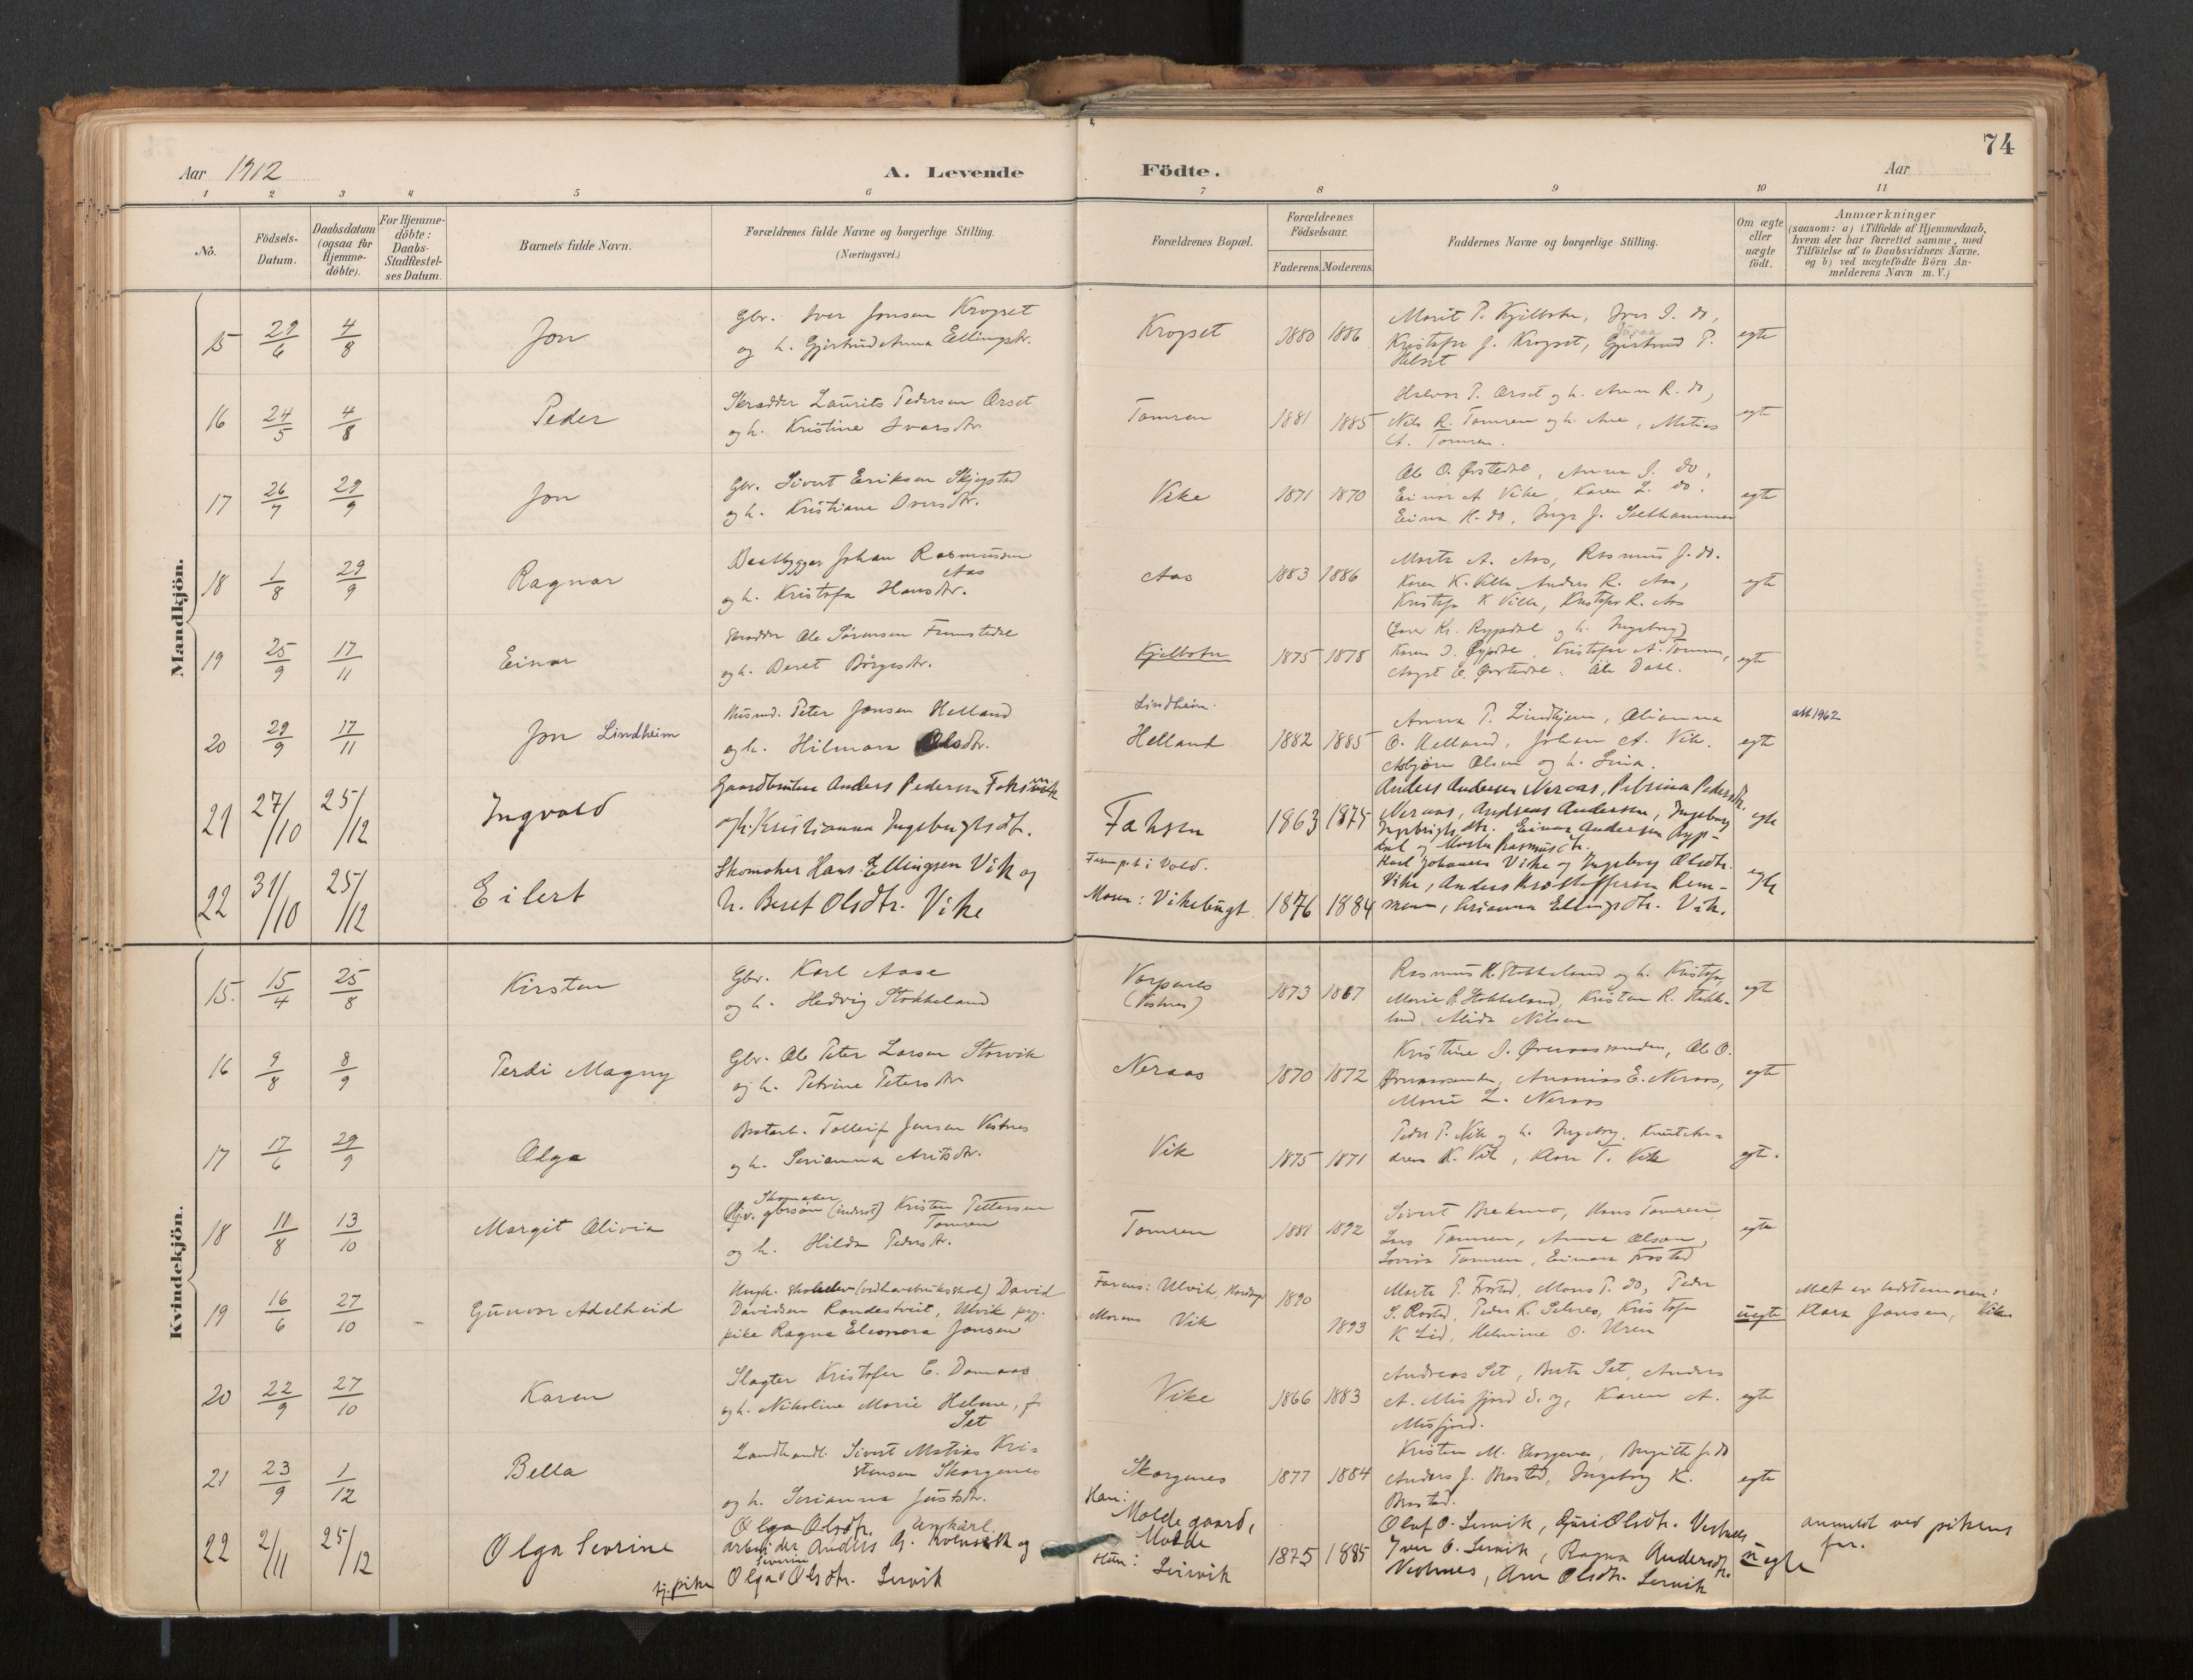 74
Aar 1912
A. Levende Födte.
Aar
1 2 3 4 5 6 7 8 9 10 11
No.
Födsels-
Datum.
Daabsdatum
(ogsaa for
Hjemme-
döbte).
For Hjemme-
döbte:
Daabs-
Stadfæstel-
ses Datum.
Barnets fulde Navn.
Forældrenes fulde Navne og borgerlige Stilling.
(Næringsvei.)
Forældrenes Bopæl.
Forældrenes
Födselsaar.
Faderens. Moderens.
Faddernes Navne og borgerlige Stilling.
Om ægte
eller
uægte
födt.
Anmærkninger
(saasom: a) i Tilfælde af Hjemmedaab,
hvem der har forrettet samme, med
Tilföielse af to Daabsvidners Navne,
og b) ved uægtefödte Börn An-
melderens Navn m. V.)
Mandkjön.
15 29/6 4/8 Jon
Gbr. Iver Jonsen Krogset
og h. Gjertrud Anna Ellingsdtr.
Krogset 1880 1886
Marit P. Kjelbotn, Iver I. do,
Kristofer J. Krogset, Gjertrud P.
Helset
egte
16 24/5 4/8 Peder
Skrædder Laurits Pedersen Orset
og h. Kristine Ivarsdtr.
Tomren 1881 1885
Halvor P. Orset og h. Anna R. do,
Nils R. Tomren og h. Ane, Matias
A. Tomren.
egte
17 26/7 29/9 Jon
Gbr. Sivert Eriksen Skjegstad
og h. Kristiane Iversdtr.
Vike 1871 1870
Ole O. Øvstedal, Anna I. do,
Einar A Vike, Karen L. do.
Einar H. do, Inga J. Salthammer
egte
18 1/8 29/9 Ragnar
Baatbygger Johan Rasmussen
Aas
og h. Kristofa Hansdtr.
Aas 1883 1886
Marta A. Aas, Rasmus J. do.
Karen K. Villa Anders R. Aas,
Kristofa K Villa, Kristofer R. Aas
egte
19 25/9 17/11 Einar
Skrædder Ole Sørensen Fremstedal
og h. Beret Börgesdtr.
Kjelbotn 1875 1878
Iver Kr. Rypdal og h. Ingeborg
Karen I. Rypdal, Kristofer A. Tomren,
August O. Øvstedal. Ole Dahl.
egte
20 29/9 17/11 Jon Lindheim
Husmd. Peter Jonsen Helland
og h. Hilmara Olsdtr.
Lindheim.
Helland 1882 1885
Anna P. Lindhjem, Olianna
O. Helland, Johan A. Vik.
Asbjörn Olsen og h. Lina.
egte
att 1962
21 27/10 25/12 Ingvald
Gaardbruker Anders Pedersen
og h. Kristianna Ingebrigtsdt.
Fahsen 1863 1875
Anders Andersen Neraas, Petrina Pedersdtr.
Neraas, Andreas Andersen, Ingeborg
Ingebrigtsdtr. Einar Andersen Ryp-
dal og Marta Rasmusdtr.
egte
22 31/10 25/12 Eilert
Skomaker Hans Ellingsen Vik og
h. Beret Olsdtr. Vike
Faren p.t. i Vold.
Moren: Vikebugt 1876 1884
Karl Johansen Vike og Ingeborg Olsdtr.
Vike, Anders Kristoffersen Rem-
mem, Serianna Ellingsdtr. Vik.
egte
Kvindekjön.
15. 15/4 25/8 Kirsten
Gbr. Karl Aase
og h. Hedvig Stokkeland
Vorpenes
(Vestnes) 1873 1867
Rasmus R. Stokkeland og h. Kristofa,
Marie R. Stokkeland, Kristen R. Stokke-
land, Alida Nilsen
egte
16 9/8 8/9 Perdi Magny
Gbr. Ole Peter Larsen Storvik
og h. Petrine Petersdtr
Neraas 1870 1872
Kristine I. Øveraasmuden, Ole O.
Øveraasmuden, Ananias E. Neraas,
Marie L. Neraas
egte
17 17/6 29/9 Olga
Tolleif Jensen Vestnes
og h. Serianna Aritsdtr.
Vik 1875 1871
Peder P. Vik og h. Ingeborg, Knut An-
dreas K. Vik, T. Vik
egte.
18 11/8 13/10 Margit Olivia
Skomaker
gbrsøn (inderst) Kristen Pettersen
Tomren
og h. Hilda Pedersdtr.
Tomren 1881 1892
Sivert Brekmo, Hans Tomren,
Lars Tomren, Anna Olsen,
Lovisa Tomren, Einar Frostad
egte
19 16/6 27/10 Gunvor Adelheid
Ungk. David
Davidsen Randestveit, Ulvik prg.
pike Ragna Eleonora Jonsen
Farens: Ulvik, Hardanger 1890
Morens Vik 1893
Marta P. Frostad, Mons P. do, Peder
S. Rostad, Peder K. Selnes, Kristofa
K Lid, Helmine O. Uren
uegte
Meldt av
Klara Jonsen, Viken
20 22/9 27/10 Karen
Slagter Kristofer E. Domaas
og h. Nikoline Marie Helene, f.
Set
Vike 1866 1883
Andreas Set, Berte Set, Anders
A. Misfjord d. y, Karen A.
Misfjord.
egte
21 23/9 1/12 Bella
Landhandl. Sivert Matias Kri-
stensen Skorgenes
og h. Serianna Justsdtr.
Skorgenes 1877 1884
Kristen M. Skorgenes, Birgitte J. do
Anders J. Brastad, Ingeborg K.
Brastad.
egte
22 2/11 25/12 Olga Sevrine
Olga Olsdtr. Ungkarl.
arbeider Anders og
Severine
tj. pike Olga Olsdtr. Servik
Han:
Moldegaard,
Molde
Hun: Servik 1875 1885
Olaf O. Servik, Guri Olsdtr. Vestnes
Iver O. Servik, Ragna Andersdtr.
Vestnes, Ane Olsdtr. Servik
uegte
anmeldt ved pikens
far.